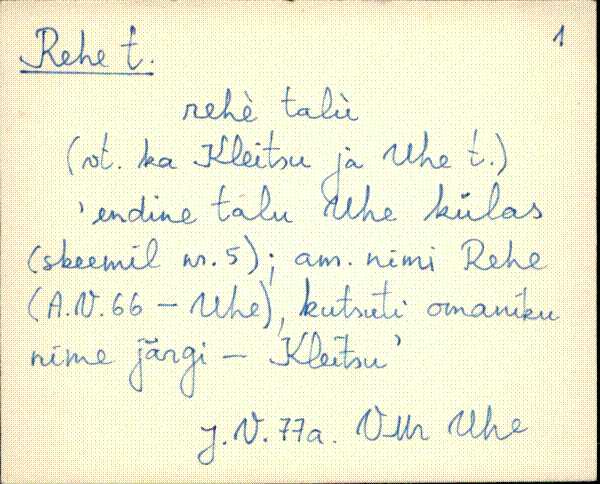 Rehe t. 1
rehè talù
(vt. ka Kleitsu ja Uhe t.)
'endine talu Uhe külas
(skeemil nr. 5); am. nimi Rehe
(A.V. 66 – Uhe), kutsuti omaniku
nime järgi – Kleitsu'
J. V. 77a. VMr Uhe